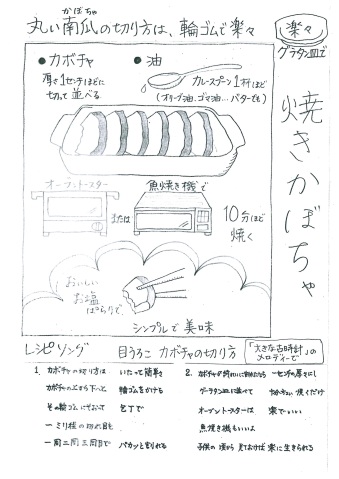 かぼちゃ
丸い南瓜の切り方は、輪ゴムで楽々
楽々
グラタン皿で
焼きかぼちゃ
●カボチャ
厚さ1センチほどに
切って並べる
●油
カレースプーン1杯ほど
(オリーブ油、ゴマ油…バターでも)
オーブントースター
または
魚焼き機で
10分ほど
焼く
おいしい
お塩
ぱらりで、
シンプルで美味
レシピソング
目うろこ カボチャの切り方
「大きな古時計」の
メロディーで
1. カボチャの切り方は いたって簡単
カボチャの上から下へと 輪ゴムをかける
その輪ゴムにそって 包丁で
一ミリ程の切れ目を
一周二周三周目で パカッと割れる
2. カボチャが
一センチの厚さにし
グラータン皿に並べて
焼くだけ
オーブントースターは 楽でいい
魚焼き機もいいよ
子供の頃から 見ておけば 楽に生きられる